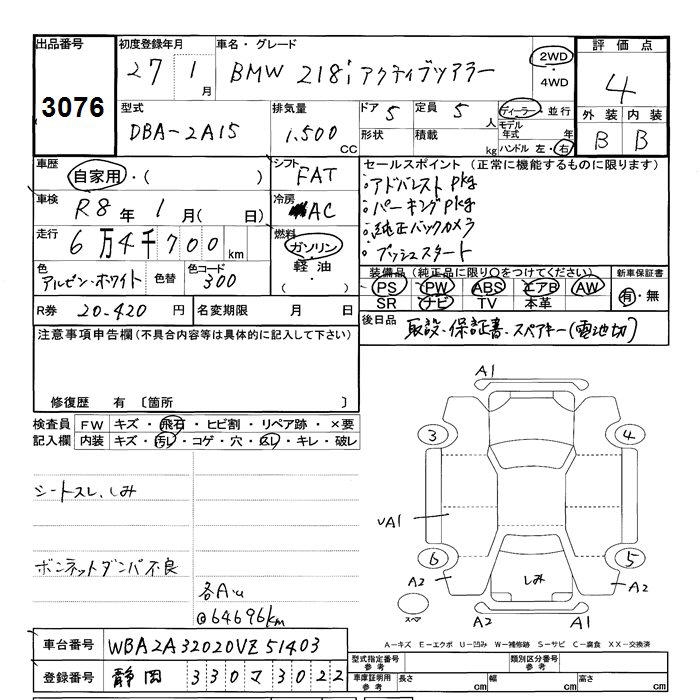 出品番号 初度登録年月 車名・グレード 評価点
3076 27 1月 BMW 218i アクティブツアラー 2WD・4WD 4
型式 排気量 ドア 5 定員 5人 ディーラー・並行 外装 内装
DBA-2A15 1.500CC 形状 積載 kg モデル年式 年 ハンドル 左・右 B B
車歴 自家用・( ) シフト FAT セールスポイント (正常に機能するものに限ります)
車検 R8年 1月( 日) 冷房 AC
・アドバンスト pkg
・パーキング pkg
・純正バックカメラ
・プッシュスタート
走行 6万4千700km 燃料 ガソリン・軽油・( )
色 アルピン・ホワイト 色替 色コード 300
装備品 (純正品に限り○をつけてください) 新車保証書
PS PW ABS エアB AW 有・無
SR ナビ TV 本革
R券 20.420円 名変期限 月 日
後日品 取説・保証書・スペアキー(電池切)
注意事項申告欄 (不具合内容等は具体的に記入して下さい)
修復歴 有 〔箇所 〕
検査員記入欄 FW キズ・飛石・ヒビ割・リペア跡・×要
内装 キズ・汚レ・コゲ・穴・スレ・キレ・破レ
シートスレ、しみ
ボンネットダンパ不良
各Aυ
@64696km
A1
3 4
υA1
6 5
A2 しみ A2
スペア
A2 A1
A-キズ E-エクボ U-凹み W-補修跡 S-サビ C-腐食 XX-交換済
車台番号 WBA2A32020VZ51403
登録番号 静岡 330マ3022
型式指定番号 参考 類別区分番号 参考
車庫証明用 参考 長さ cm 幅 cm 高さ cm